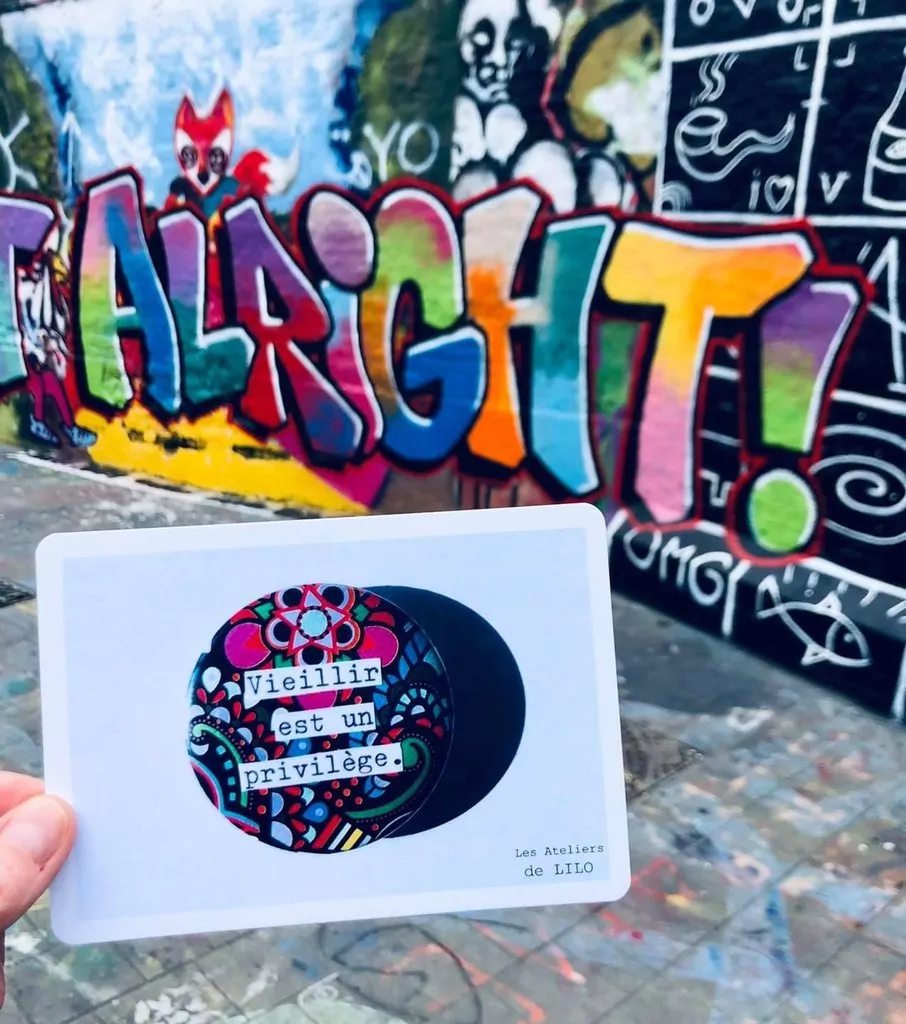 YO
i ♡ V
T ALRIGHT!
OMG
Vieillir
est un
privilège.
Les Ateliers
de LILO